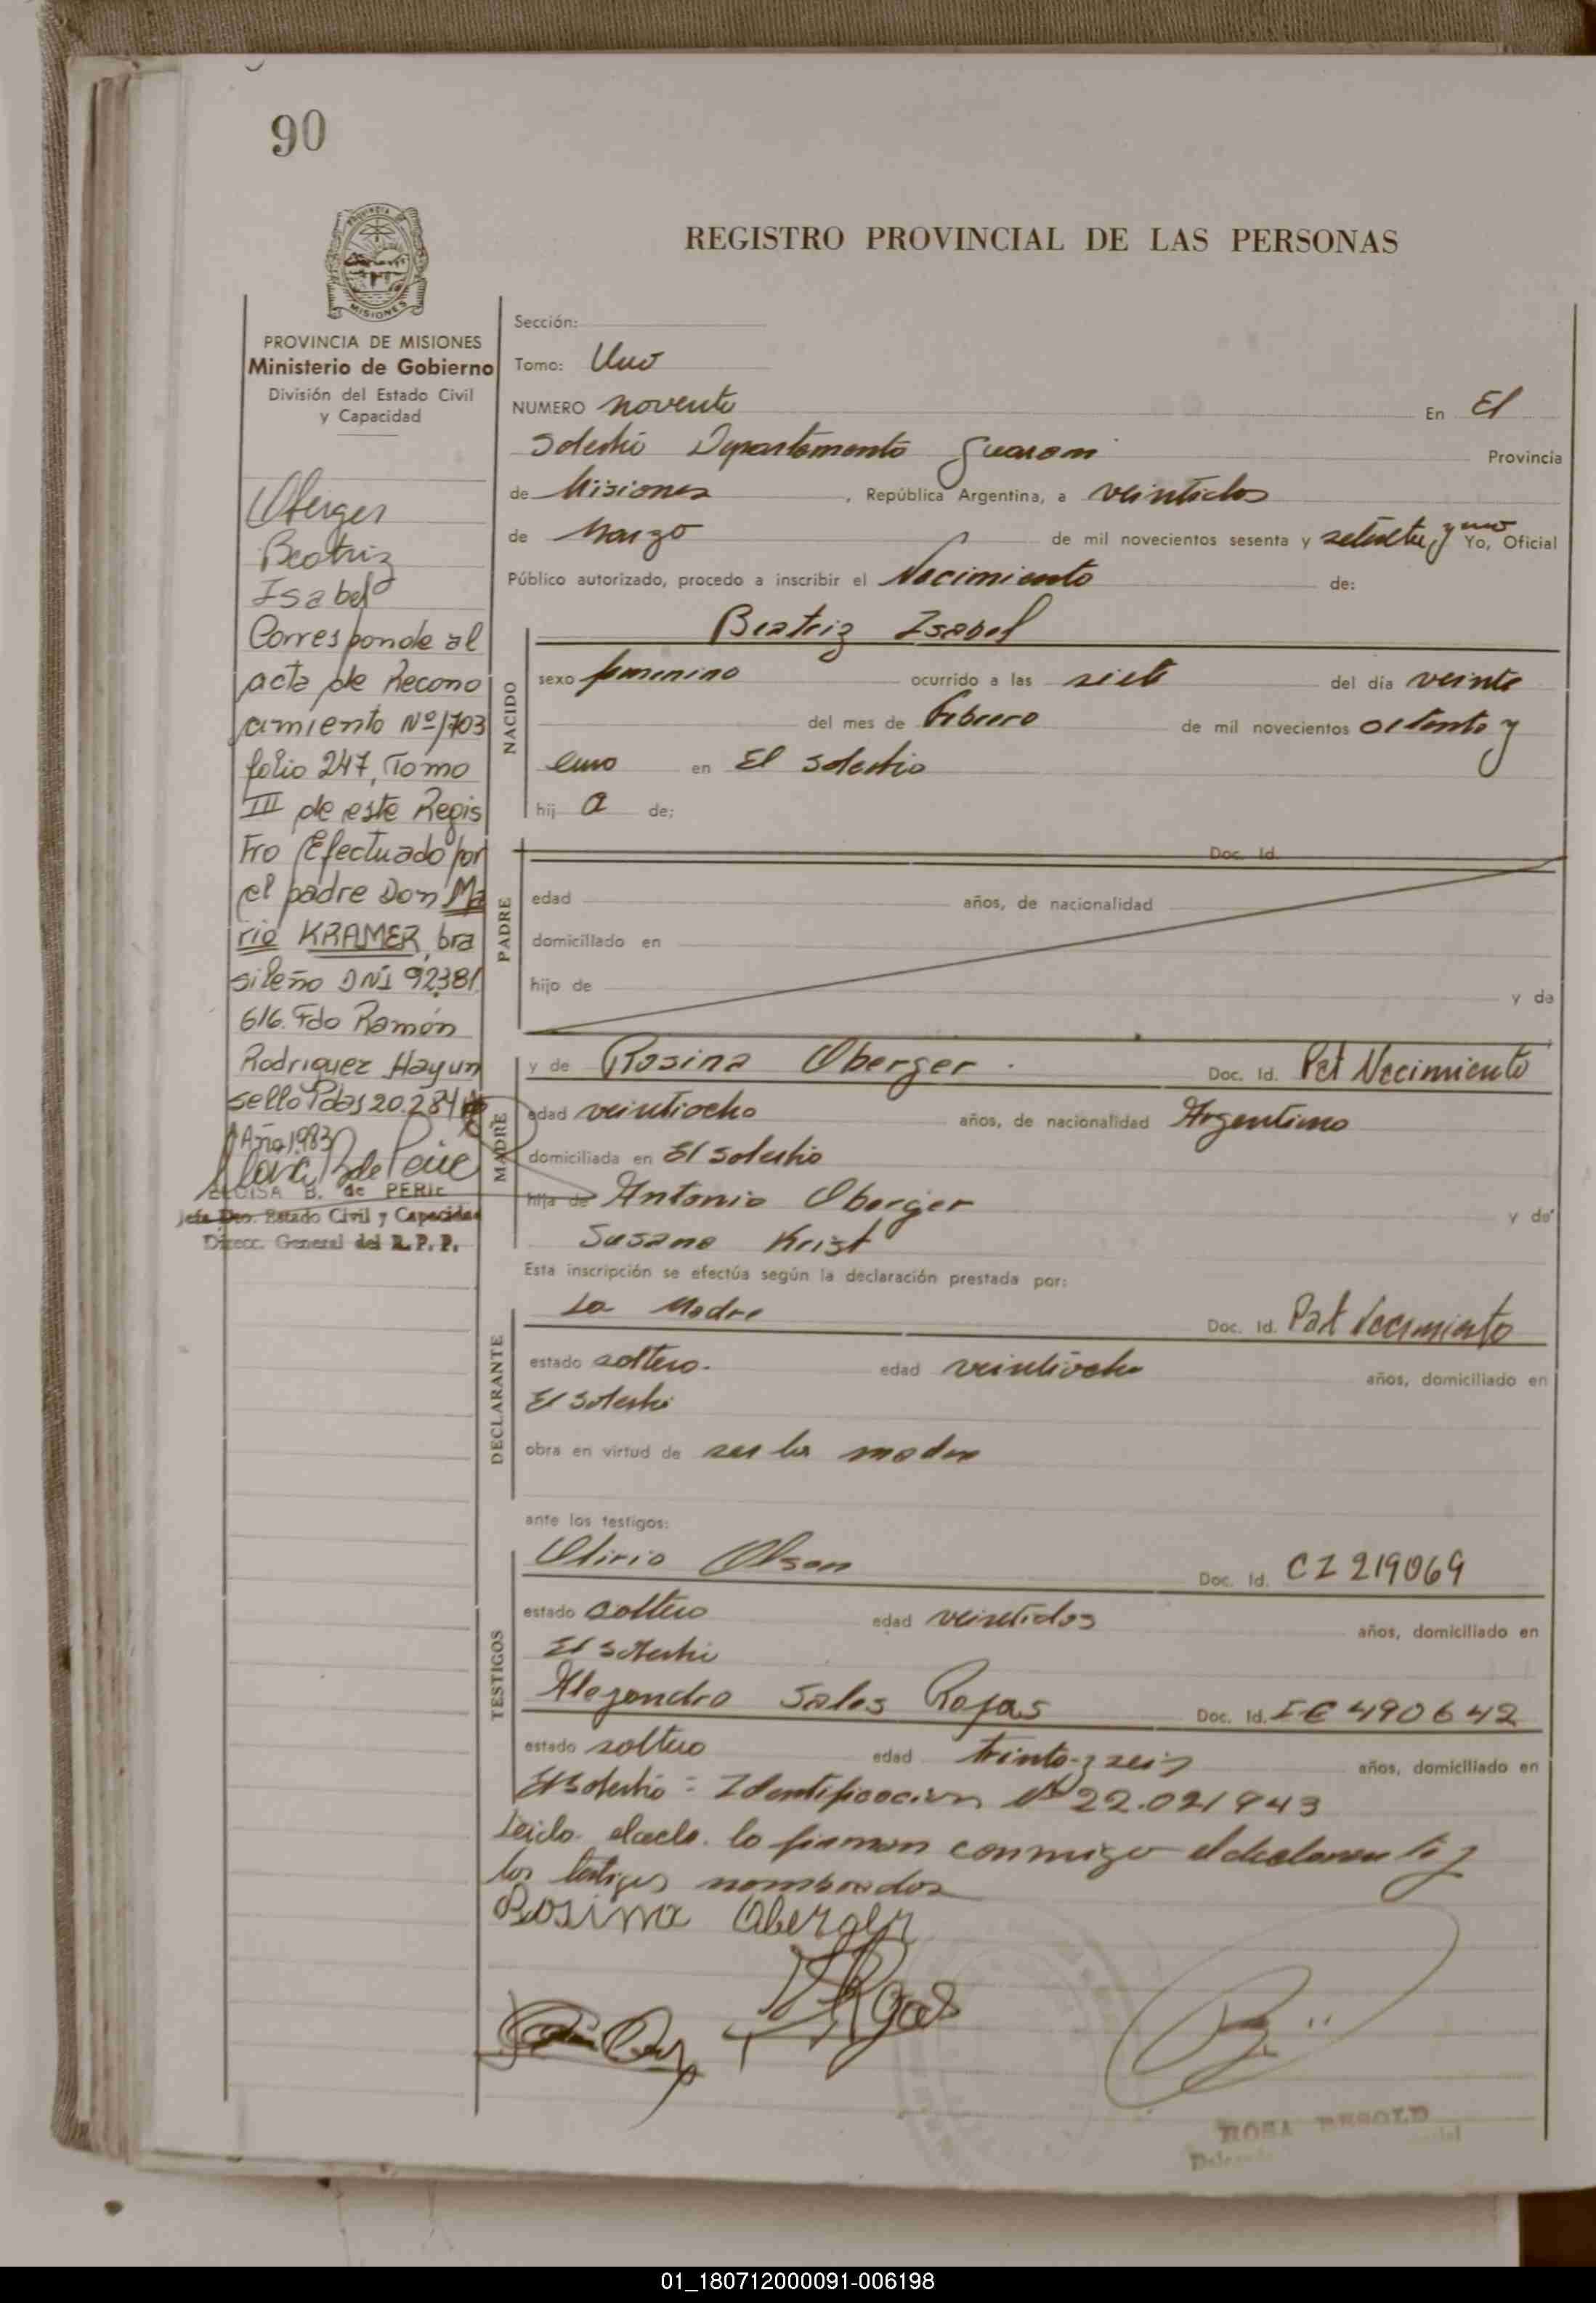 90
PROVINCIA DE MISIONES
Ministerio de Gobierno
División del Estado Civil
y Capacidad
Oberger
Beatriz
Isabel
Corresponde al
acta de Recono
cimiento Nº 1703
folio 247, Tomo
III de este Regis
tro Efectuado por
el padre Don Ma
rio KRAMER, bra
sileño DNI 92.381
616. Fdo Ramón
Rodriguez Hayun
sello Pdas 20.284
Año 1983
ELOISA B. de PERIE
Jefa Dto. Estado Civil y Capacidad
Direcc. General del R. P. P.
REGISTRO PROVINCIAL DE LAS PERSONAS
Sección:
Tomo: Uno
NUMERO noventa En El
Soberbio Departamento Guarani Provincia
de Misiones, República Argentina, a veintidos
de Marzo de mil novecientos sesenta y y uno Yo, Oficial
Público autorizado, procedo a inscribir el Nacimiento de:
Beatriz Isabel
NACIDO
sexo femenino ocurrido a las siete del día veinte
del mes de Febrero de mil novecientos ochenta y
uno en El Soberbio
hij a de:
PADRE
Doc. Id.
edad años, de nacionalidad
domiciliado en
hijo de y de
MADRE
y de Rosina Oberger Doc. Id. Pat Nacimiento
edad veintiocho años, de nacionalidad Argentina
domiciliada en El Soberbio
hija de Antonio Oberger y de
Susana Krist
Esta inscripción se efectúa según la declaración prestada por:
DECLARANTE
La Madre Doc. Id. Pat Nacimiento
estado soltera edad veintiocho años, domiciliado en
El Soberbio
obra en virtud de ser la madre
ante los testigos:
TESTIGOS
Olirio Olson Doc. Id. CI 219069
estado soltero edad veintidos años, domiciliado en
El Soberbio
Alejandro Sales Rojas Doc. Id. 490642
estado soltero edad treinta y seis años, domiciliado en
El Soberbio = Identificacion Nº 22.021943
Leido el acta lo firman conmigo el declarante y
los testigos nombrados
Rosina Oberger
ROSA BESOLD
01_180712000091-006198